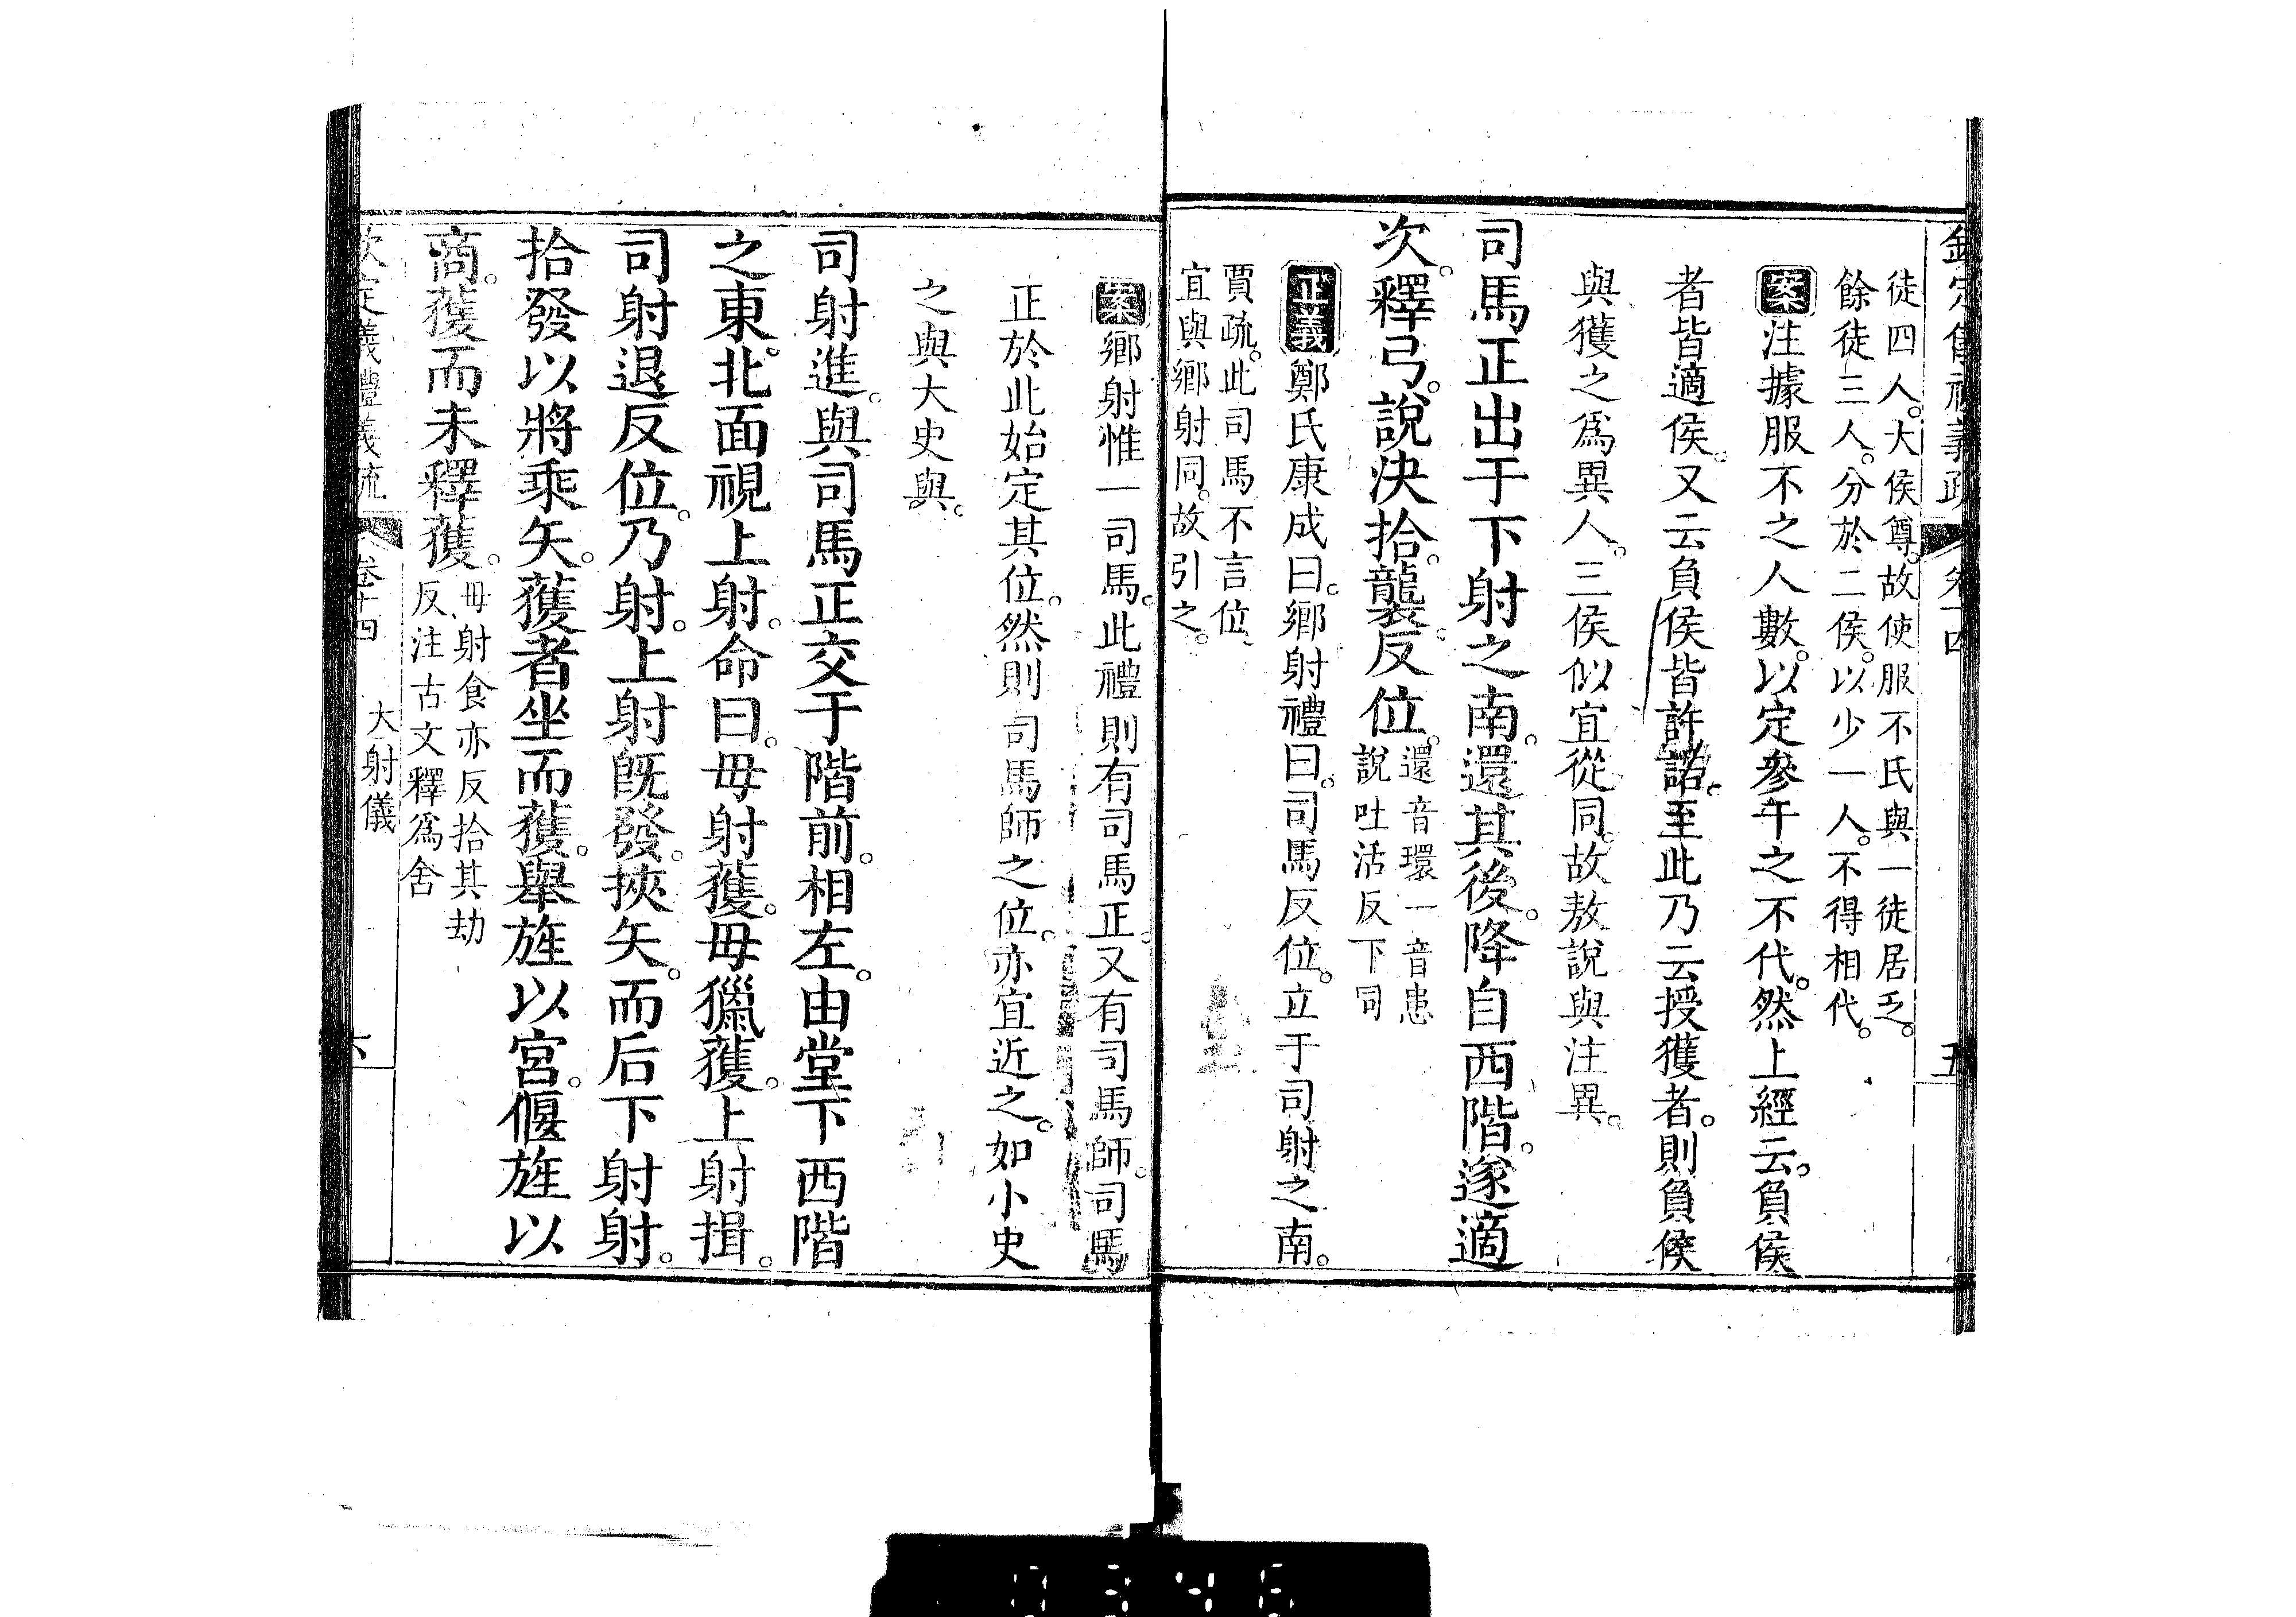 欽定儀禮義疏 卷十四 五
徒四人。大侯尊。故使服不氏與一徒居乏。
餘徒三人。分於二侯。以少一人。不得相代。
案注據服不之人數。以定參干之不代。然上經云。負侯
者皆適侯。又云負侯皆許諾。至此乃云授獲者。則負侯
與獲之爲異人。三侯似宜從同。故敖說與注異。
司馬正出于下射之南。還其後。降自西階。遂適
次。釋弓。說決拾。襲。反位。
還音環一音患
說吐活反下同
正義鄭氏康成曰。鄉射禮曰。司馬反位。立于司射之南。
賈疏。此司馬不言位、
宜與鄉射同。故引之。
案鄉射惟一司馬。此禮則有司馬正。又有司馬師。司馬
正於此始定其位。然則司馬師之位。亦宜近之。如小史
之與大史與。
司射進。與司馬正交于階前。相左。由堂下西階
之東。北面視上射。命曰。毋射獲。毋獵獲。上射揖。
司射退反位。乃射。上射旣發。挾矢。而后下射射。
拾發以將乘矢。獲者坐而獲。舉旌以宮。偃旌以
商。獲而未釋獲。
毋射食亦反拾其劫
反注古文釋爲舍
欽定儀禮義疏 卷十四 大射儀 六
0346